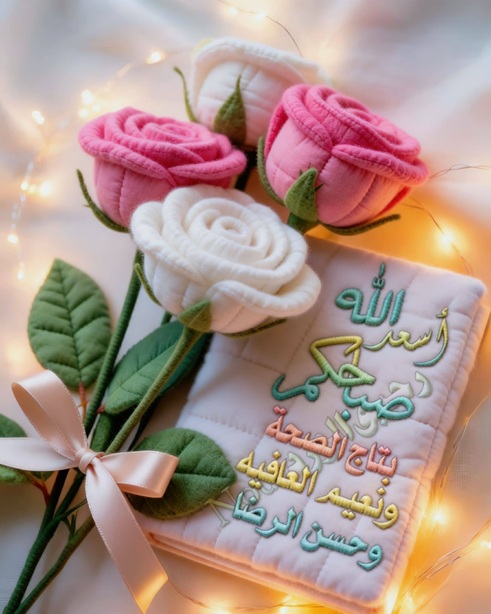 أسعد الله
صباحكم
بتاج الصحة
ونعيم العافيه
وحسن الرضا